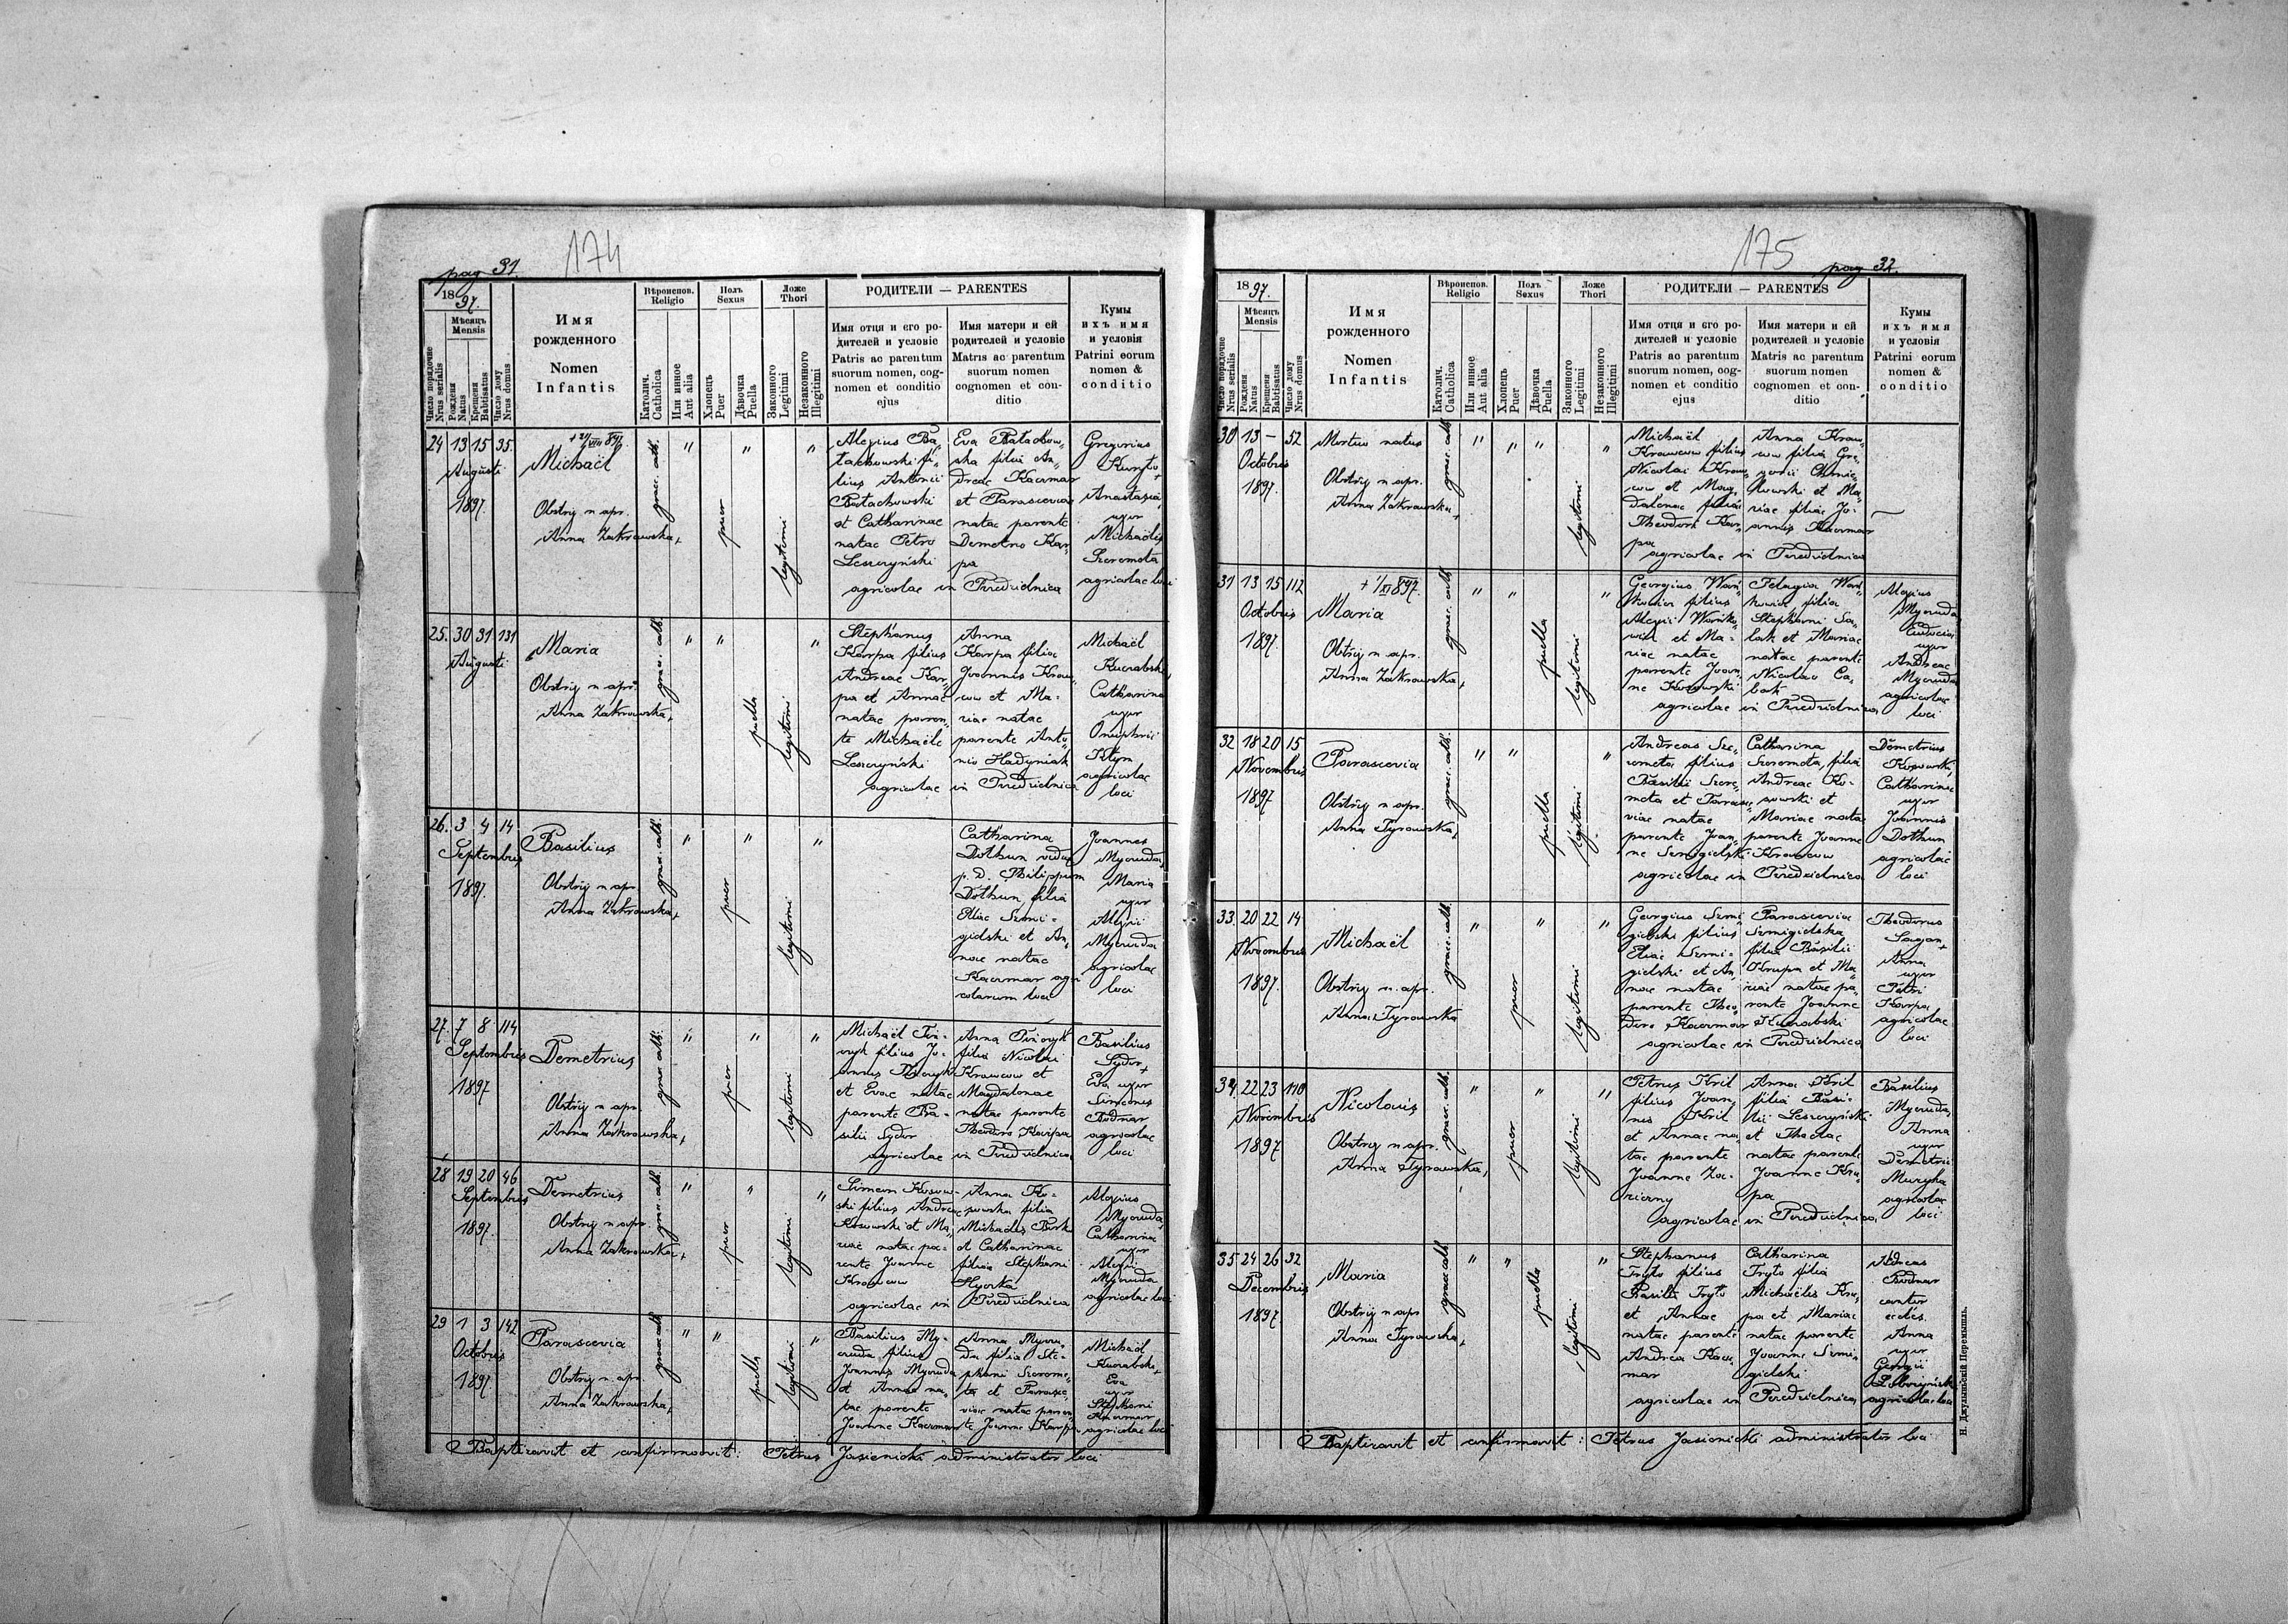 pag 31.
174
18 97.
Число порядочне
Nrus serialis
Мѣсяцъ
Mensis
Рожденя
Natus
Крещеня
Babtisatus
Число дому
Nrus domus
Имя
рожденного
Nomen
Infantis
Вѣроиспов.
Religio
Католич.
Catholica
Или инное
Aut alia
Полъ
Sexus
Хлопець
Puer
Дѣвочка
Puella
Ложе
Thori
Законного
Legitimi
Незаконного
Illegitimi
РОДИТЕЛИ — PARENTES
Имя отця и его ро-
дителей и условіе
Patris ac parentum
suorum nomen, cog-
nomen et conditio
ejus
Имя матери и ей
родителей и условіе
Matris ac parentum
suorum nomen
cognomen et con-
ditio
Кумы
ихъ имя
и условія
Patrini eorum
nomen &
conditio
24 13 15 35.
Augusti
1897.
Michaël
Obstrix n apr.
Anna Zakrowska
graec. cath.
puer
legitimi
Alexius Ba„
tachowski fi„
lius Antonii
Batachowski
et Catharinae
natae Petro
Leszczyński
Eva Batachow„
ska filia An„
dreae Kaczmar
et Parascevia
natae parente
Demetrio Kar„
pa
agricolae in Tyrzdzielnica
Gregorius
Anastasia
uxor
Michaëlis
Szeremeta
agricolae loci
25. 30 31 131
Augusti
Maria
Obstrix n apr.
Anna Zakrowska
graec. cath.
puella
legitimi
Stephanus
Karpa filius
Andreae Kar„
pa et Annae
natae paren„
te Michaële
Leszczyński
Anna
Karpa filia
Joannis Kraw„
cow et Ma-
riae natae
parente Anto„
nio Hadyniak
Michaël
Kucrabski
Catharina
uxor
Onuphrii
Klym
agricolae
loci
26. 3 4 14
Septembris
1897.
Basilius
Obstrix n apr.
Anna Zakrowska
graec. cath.
puer
legitimi
Catharina
Dothun vidua
p. d. Philippum
Dothun filia
Eliae Semi-
gielski et An„
nae natae
Kaczmar agri
colarum loci
Joannes
Mycruda
Maria
uxor
Alexii
Mycruda
agricolae
loci
27. 7 8 114
Septembris
1897
Demetrius
Obstrix n apr.
Anna Zakrowska
graec. cath.
puer
legitimi
filius Jo-
et Evae natae
parente Ba-
silii Sydor
filia Nicolai
Krawcow et
Magdalenae
natae parente
Theodoro Karpa
Basilius
Sydor
Eva uxor
Simeonis
Bodnar
agricolae
loci
28 19 20 46
Septembris
1897.
Demetrius
Obstrix n apr.
Anna Zakrowska
graec. cath.
puer
legitimi
Simeon Kosow-
ski filius Andreae
Kosowski et Ma„
riae natae pa-
rente Joanne
Krawcow
Anna Ko-
sowska filia
et Catharinae
filia Stephani
Alexius
Mycruda
Catharina
uxor
Alexii
Mycruda
agricolae loci
29 1 3 142
Octobris
1897
Parascevia
Obstrix n apr.
Anna Zakrowska
graec. cath.
puella
legitimi
Basilius My-
cruda filius
Joannis Mycruda
et Annae na„
tae parente
Joanne Kaczmar
Anna Mycru„
da filia Ste-
phani Szereme„
ta et Parasce„
viae natae paren„
te Joanne Karpa
Michaël
Kucrabski
Eva
uxor
Stephani
Kaczmar
agricolae loci
Baptizavit et confirmavit: Petrus Jasienicki administrator loci
175
pag 32.
18 97.
Число порядочне
Nrus serialis
Мѣсяцъ
Mensis
Рожденя
Natus
Крещеня
Babtisatus
Число дому
Nrus domus
Имя
рожденного
Nomen
Infantis
Вѣроиспов.
Religio
Католич.
Catholica
Или инное
Aut alia
Полъ
Sexus
Хлопець
Puer
Дѣвочка
Puella
Ложе
Thori
Законного
Legitimi
Незаконного
Illegitimi
РОДИТЕЛИ — PARENTES
Имя отця и его ро-
дителей и условіе
Patris ac parentum
suorum nomen, cog-
nomen et conditio
ejus
Имя матери и ей
родителей и условіе
Matris ac parentum
suorum nomen
cognomen et con-
ditio
Кумы
ихъ имя
и условія
Patrini eorum
nomen &
conditio
30 13 — 52
Octobris
1897.
Mortuo natus
Obstrix n apr.
Anna Zakrowska
graec. cath.
legitimi
Michaël
Krawcow filius
Nicolai Kraw„
cow et Mag„
dalenae filiae
Theodori Kar„
pa
Anna Kraw„
cow filia Gre„
gorii Chmie„
lowski et Ma„
riae filiae Jo„
annis Kaczmar
31 13 15 112
Octobris
1897.
Maria
Obstrix n apr.
Anna Zakrowska
graec. cath.
puella
legitimi
Georgius Wań„
kowicz filius
Alexii Wańko„
wicz et Ma-
riae natae
parente Joan„
ne Kosowski
Pelagia Wań„
kowicz filia
Stephani Sa„
lak et Mariae
natae parente
Nicolao Ca„
bak
Alexius
Mycruda
Eudocia
uxor
Andreae
Mycruda
agricolae
loci
32 18 20 15
Novembris
1897
Parascevia
Obstrix n apr.
Anna Tyrowska
graec. cath.
puella
legitimi
Andreas Sze„
remeta filius
Basilii Szere„
meta et Parasce„
viae natae
parente Joan„
ne Semigielski
Catharina
Szeremeta, filia
Andreae Ko-
sowski et
Mariae natae
parente Joanne
Krawcow
Demetrius
Kosowski,
Catharina
uxor
Joannis
Dothun
agricolae
loci
33. 20 22 14
Novembris
1897.
Michaël
Obstrix n. apr.
Anna Tyrowska
graec. cath.
puer
legitimi
Georgius Semi„
gielski filius
Eliae Semi-
gielski et An„
nae natae
parente Theo„
doro Kaczmar
Parascevia
Semigielska
filia Basilii
Krupa et Ma„
riae natae pa„
rente Joanne
Kucrabski
Theodorus
Sagan
Anna
uxor
Petri
Karpa
agricolae
loci
34. 22 23 110
Novembris
1897
Nicolaus
Obstrix n apr.
Anna Tyrowska
graec. cath.
puer
legitimi
Petrus Kril
filius Joan„
nis Kril
et Annae na„
tae parente
Joanne Za-
Anna Kril
filia Basi-
lii Leszczyński
et Theclae
natae parente
Joanne Kru
pa
Basilius
Mycruda,
Anna
uxor
Demetrii
Muryka
agricolae
loci
35 24 26 32
Decembris
1897.
Maria
Obstrix n apr
Anna Tyrowska
graec cath
puella
legitimi
Stephanus
Tryto filius
Basilii Tryto
et Annae
natae parente
Andrea Kacz„
mar
Catharina
Tryto filia
Michaëlis Kru„
pa et Mariae
natae parente
Joanne Semi„
gielski
Andreas
Bodnar
cantor
eccles.
Anna
uxor
Georgii
agricolae loci
Baptizavit et confirmavit: Petrus Jasienicki administrator loci
Н. Джулынскій Перемышль.